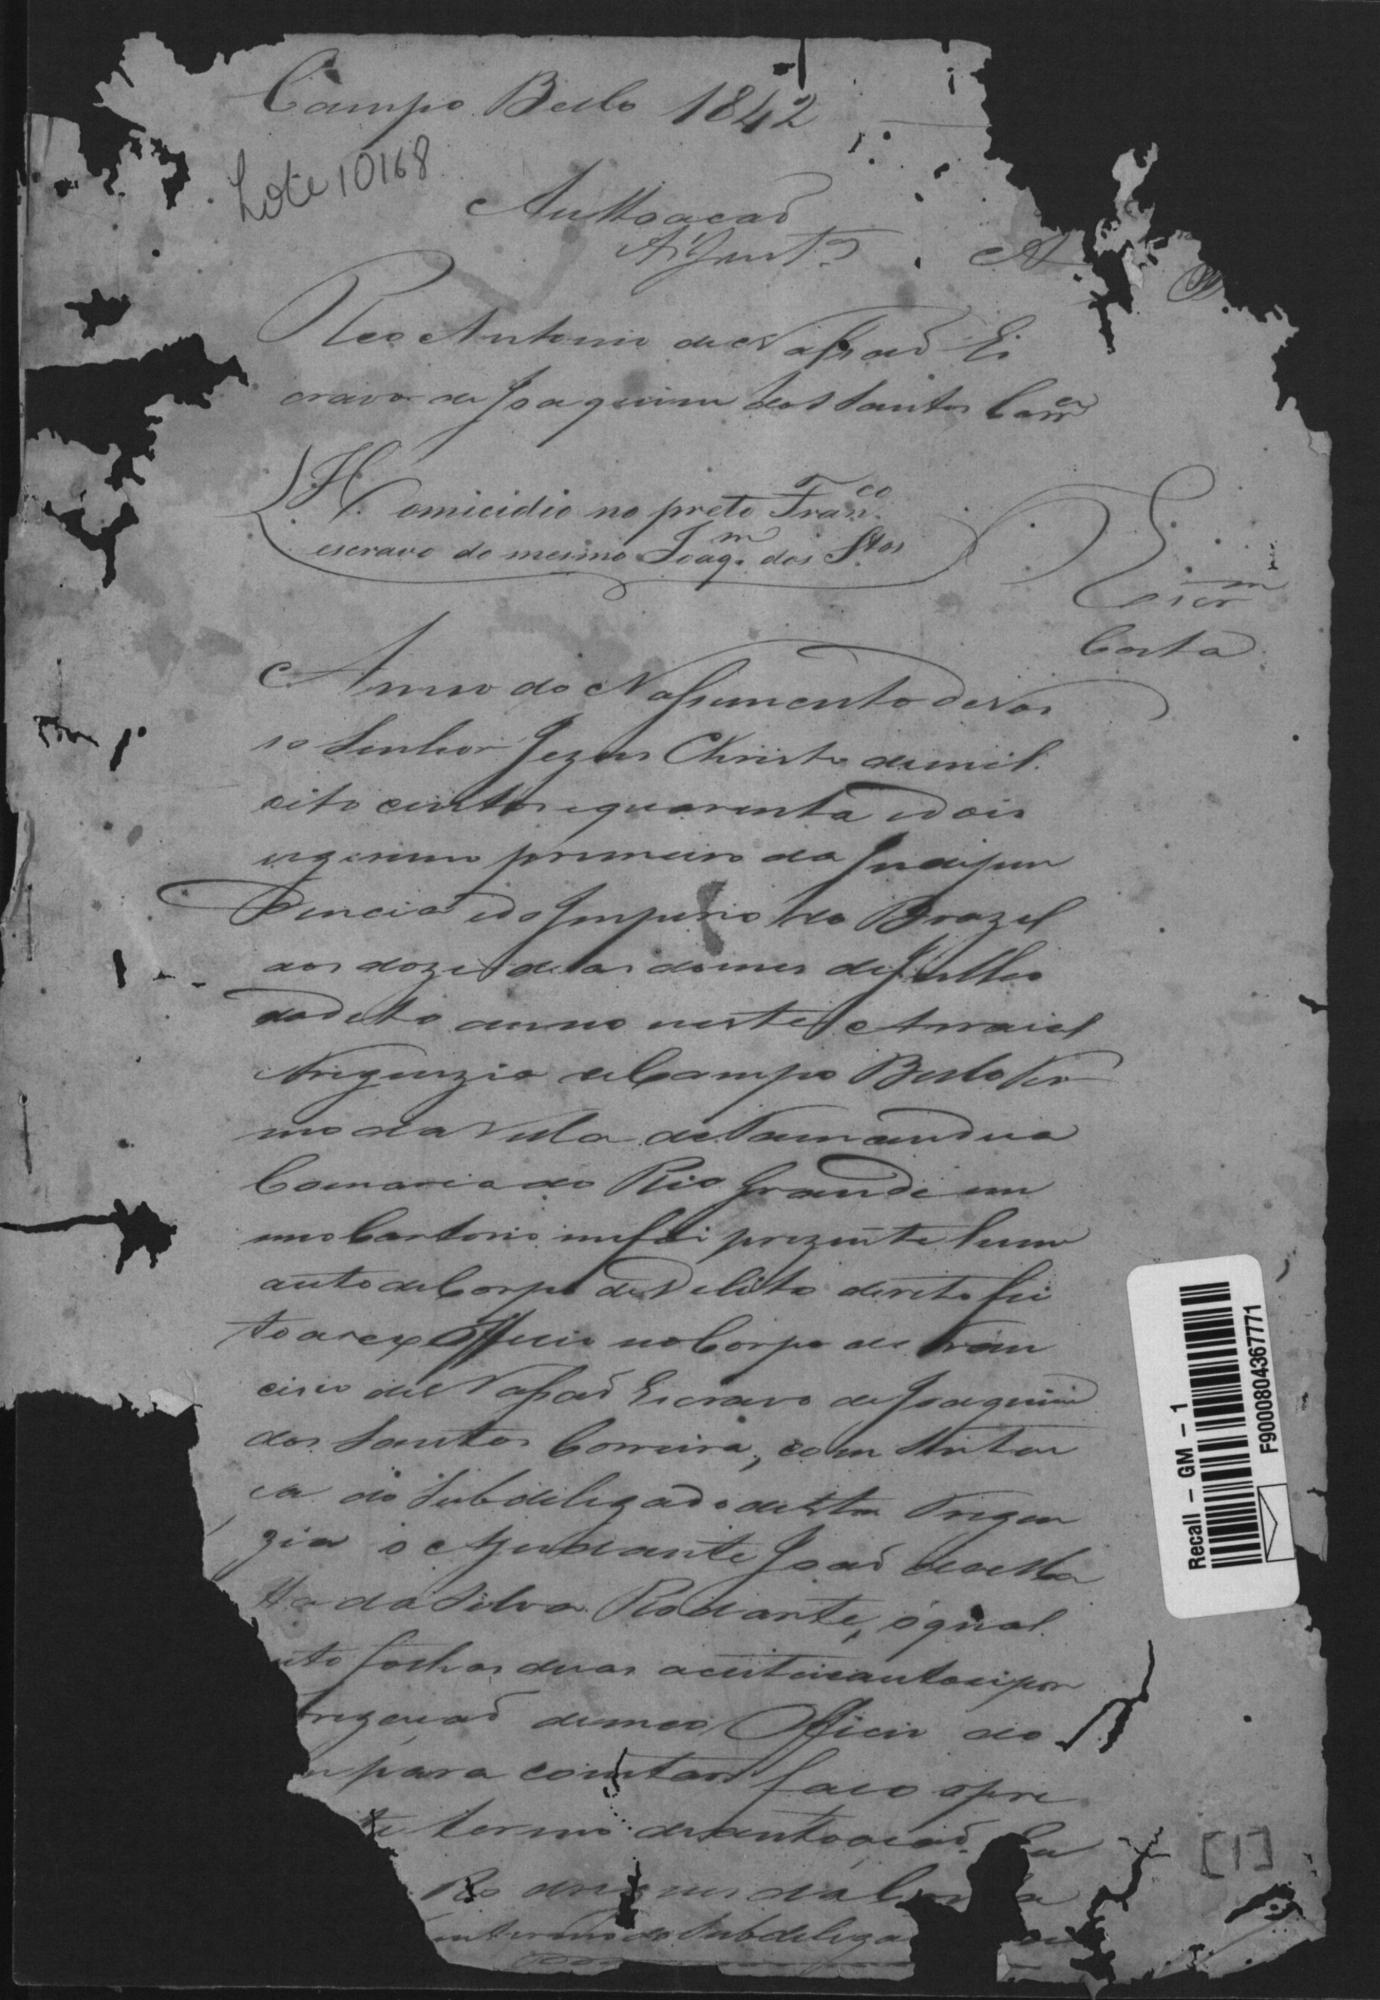 Campo Bello 1842
Lote 10168
Auttoacaõ
A Just.ª
Reo Antonio de Nassaõ Es
cravo de Joaquim dos Santos Corr.ª
Homicidio no preto Fran.co
escravo do mesmo Joaq.m dos S.tos
Escr.m
Costa
Anno do Nassimento de Nos
so Senhor Jezus Christo de mil
oito centos e quarenta e dois
vigesimo primeiro da Indipen
dencia e do Imperio do Brazil
aos doze dias do mes de Julho
do dito anno neste Arraial
Freguezia de Campo Bello Ter
mo da Villa de Tamandua
Comarca do Rio Grande em
meo Cartorio me foi prezente hum
auto de Corpo de Delito dereto fei
to a ex Officio no Corpo de Fran
cisco de Nassaõ Escravo de Joaquim
dos Santos Correira, com
do Subdeligado desta Fregue
zia o Ajudante Joaõ da Ma
tta da Silva Rodarte, o qual
folhas duas aceitei autoei por
de meo Officio do
para constar faco o pre
te termo de autoacaõ. Eu
Ro drigues da
interino do Subdeliga
[1]
Recall - GM - 1
F9000804367771